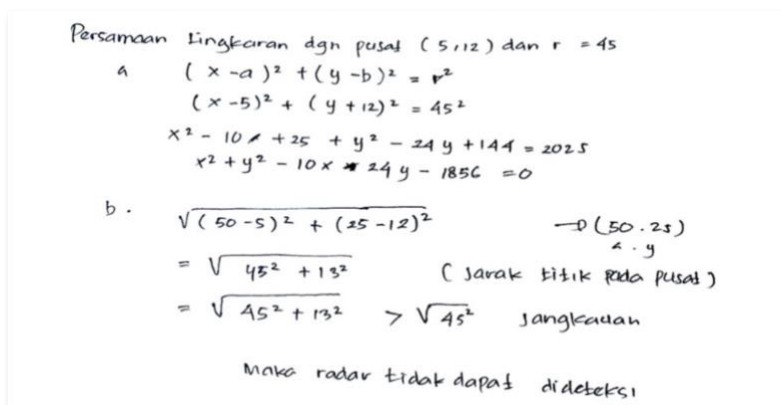 Persamaan Lingkaran dgn pusat (5,12) dan r = 45
a (x-a)² + (y-b)² = r²
(x-5)² + (y+12)² = 45²
x² - 10x + 25 + y² - 24y + 144 = 2025
x² + y² - 10x - 24y - 1856 = 0
b. √(50-5)² + (25-12)² → (50.25)
x . y
= √45² + 13² (Jarak titik pada pusat)
= √45² + 13² > √45² Jangkauan
Maka radar tidak dapat dideteksi